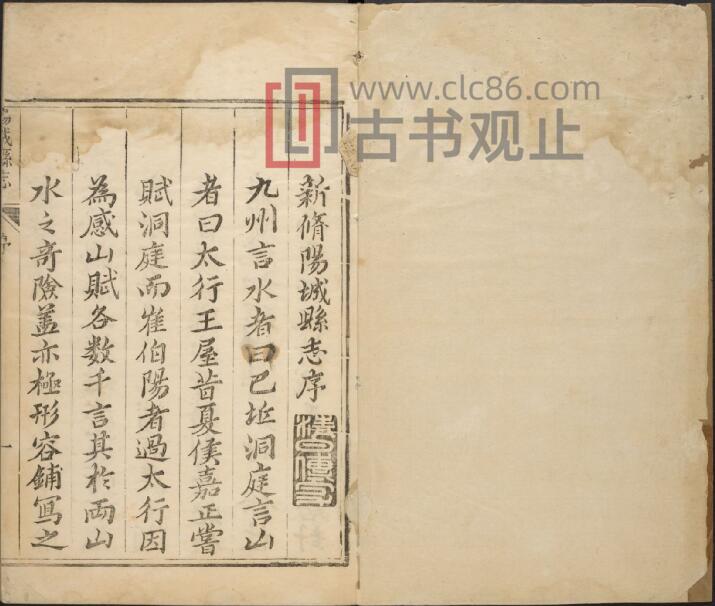 www.clc86.com
古书观止
新脩陽城縣志序
九州言水者曰巴丘洞庭言山
者曰太行王屋昔夏侯嘉正嘗
賦洞庭而崔伯陽者過太行因
為感山賦各数千言其於兩山
水之奇險盖亦極形容鋪寫之
陽城縣志
序
一